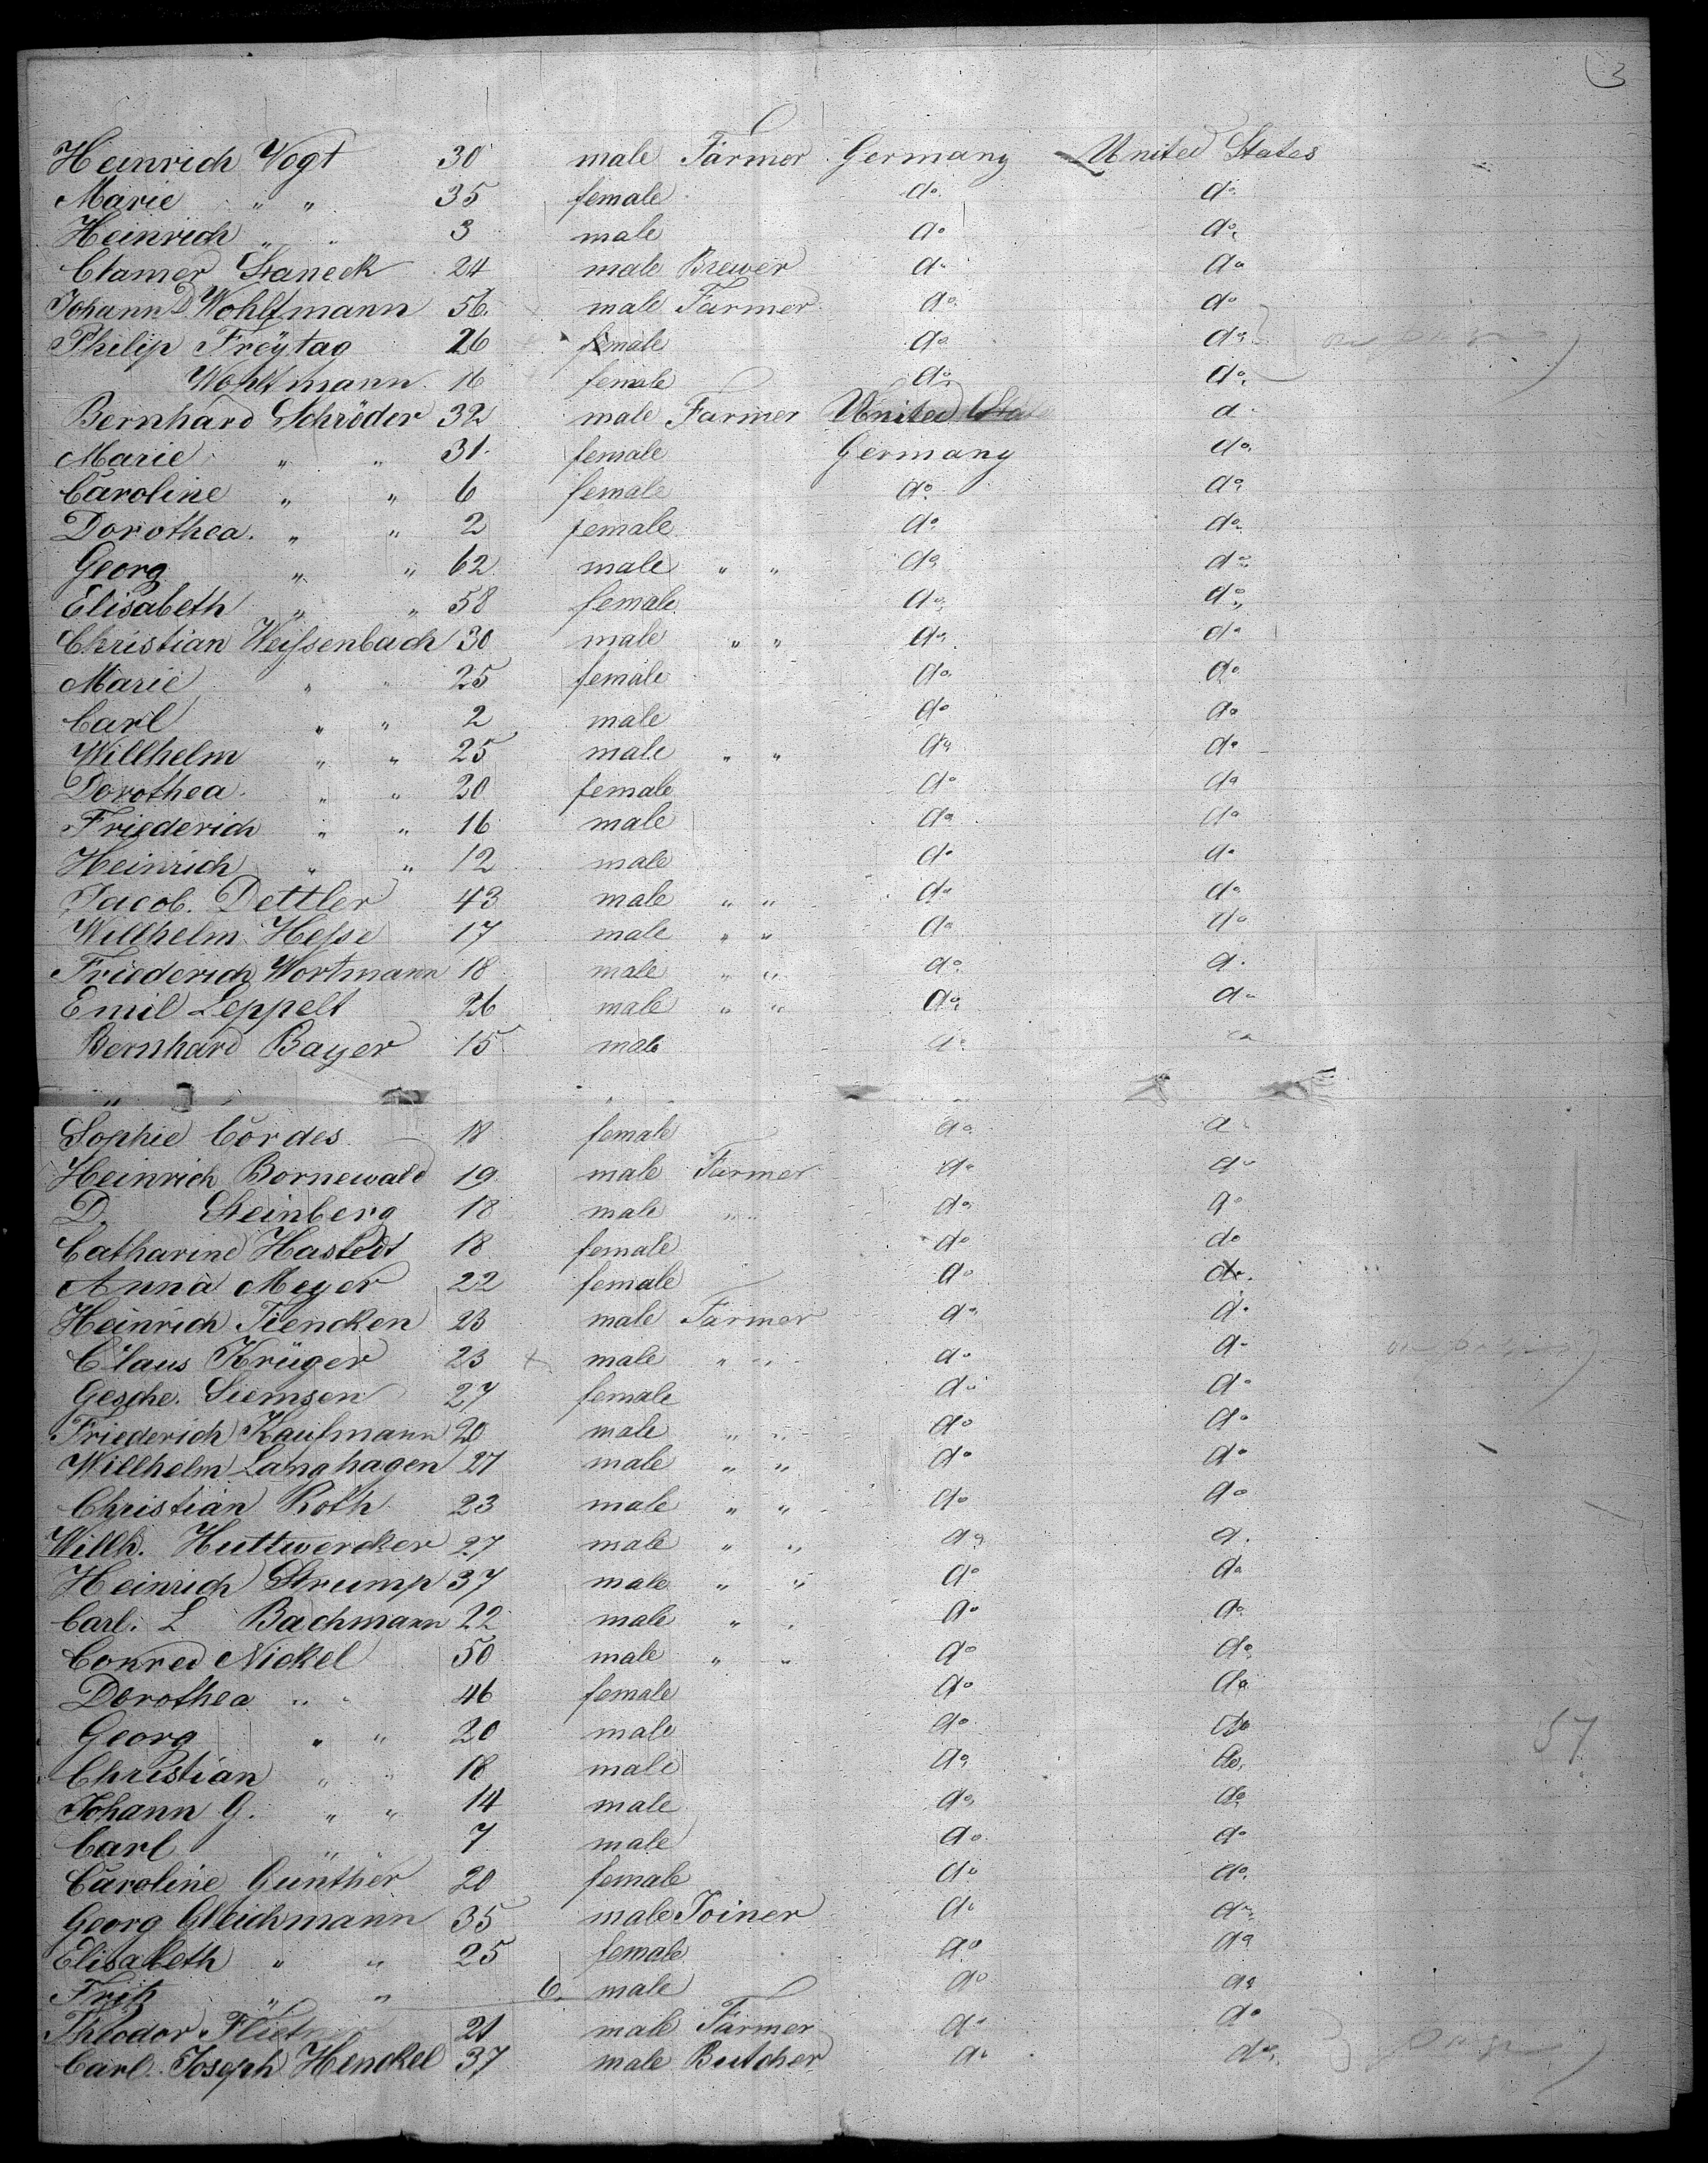 3
Heinrich Vogt 30 male Farmer Germany United States
Marie " " 35 female do do
Heinrich " " 3 male do do
Clamer Staneck 24 male Brewer do do
Johann D Wohltmann 56 male Farmer do do
Philip Freÿtag 26 male do do
Wohltmann 16 female do do
Bernhard Schröder 32 male Farmer United States do
Marie " " 31 female Germany do
Caroline " " 6 female do do
Dorothea " " 2 female do do
Georg " " 62 male " " do do
Elisabeth " " 58 female do do
Christian Weissenbach 30 male " " do do
Marie " " 25 female do do
Carl " " 2 male do do
Willhelm " " 25 male " " do do
Dorothea " " 20 female do do
Friederich " " 16 male do do
Heinrich " " 12 male do do
Jacob. Dettler 43 male " " do do
Willhelm Hesse 17 male " " do do
Friederich Wortmann 18 male " " do do
Emil Leppelt 26 male " " do do
Bernhard Bayer 15 male do do
Sophie Cordes 18 female do do
Heinrich Bornewald 19 male Farmer do do
D. Steinberg 18 male " " do do
Catharine Hastedt 18 female do do
Anna Meyer 22 female do do
Heinrich Tiencken 23 male Farmer do do
Claus Krüger 23 male " " do do
Gesche. Siemsen 27 female do do
Friederich Kaufmann 20 male " " do do
Willhelm Langhagen 27 male " " do do
Christian Roth 23 male " " do do
Willh. Huttwercker 27 male " " do do
Heinrich Strump 37 male " " do do
Carl. L Bachmann 22 male " " do do
Conred Nickel 50 male " " do do
Dorothea " " 46 female do do
Georg " " 20 male do do
57
Christian " " 18 male do do
Johann G. " " 14 male do do
Carl " " 7 male do do
Caroline Günther 20 female do do
Georg Gleichmann 35 male Joiner do do
Elisabeth " " 25 female do do
Fritz " " 6 male do do
Theodor 21 male Farmer do do
Carl. Joseph Henckel 37 male Butcher do do